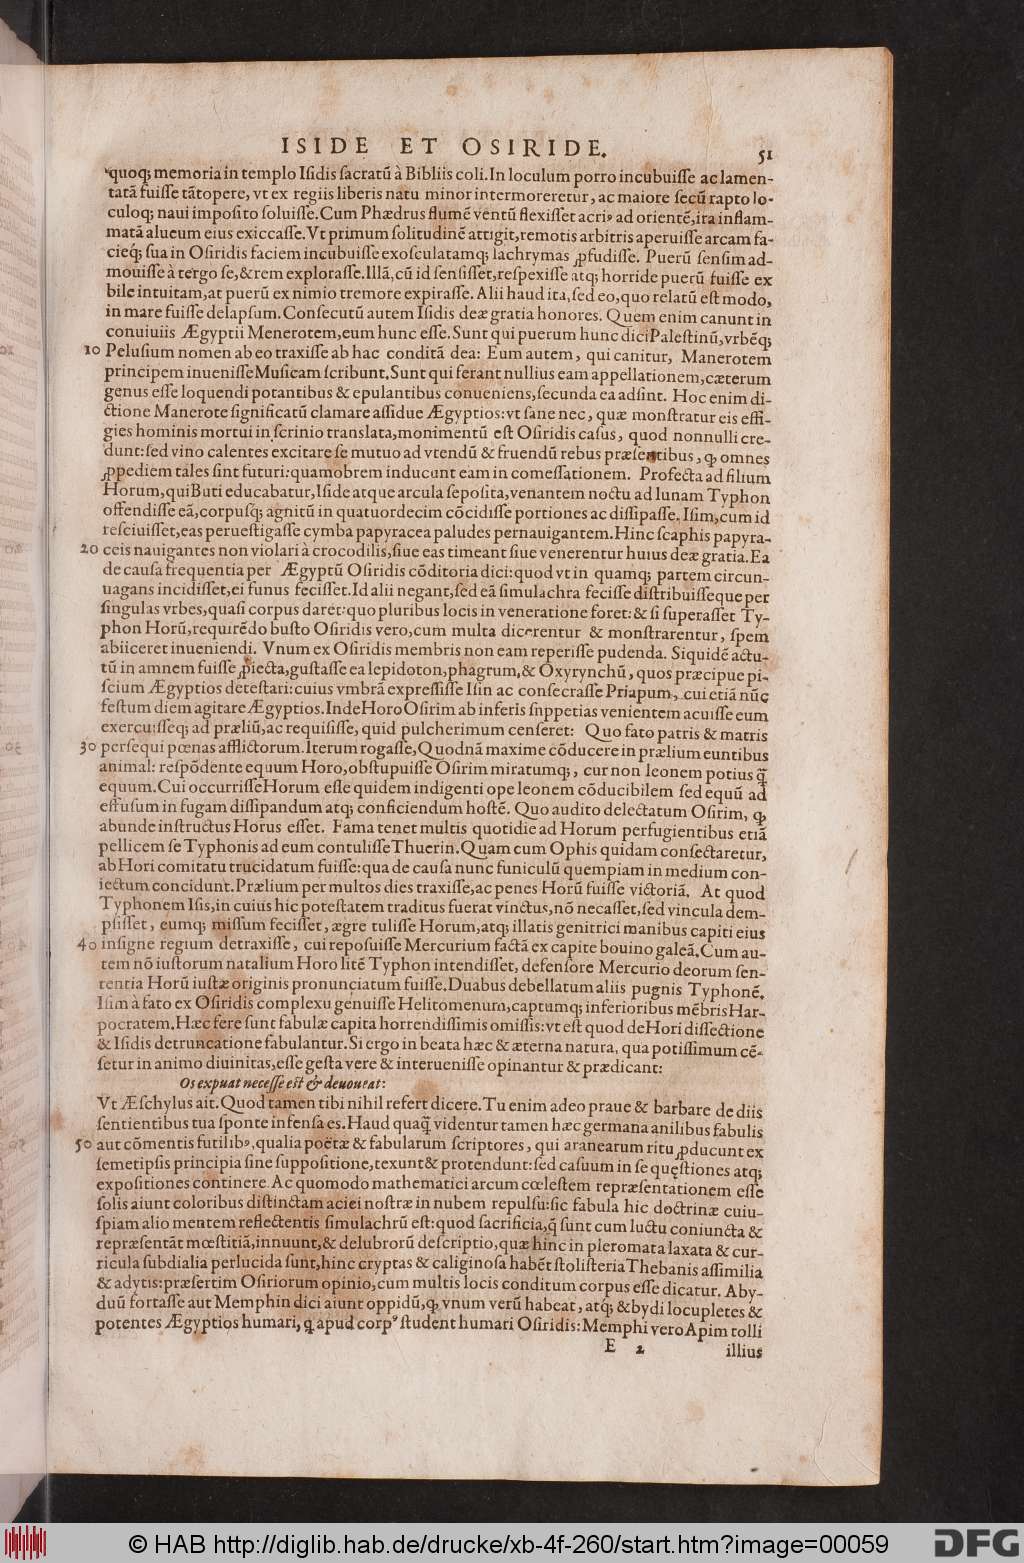 ISIDE ET OSIRIDE. 51
quoq; memoria in templo Isidis sacratũ à Bibliis coli. In loculum porro incubuisse ac lamen-
tatã fuisse tãtopere, vt ex regiis liberis natu minor intermoreretur, ac maiore secũ rapto lo-
culoq; naui imposito soluisse. Cum Phædrus flumẽ ventũ flexisset acriꝰ ad orientẽ, ira inflam-
matã alueum eius exiccasse. Vt primum solitudinẽ attigit, remotis arbitris aperuisse arcam fa-
cieq́; sua in Osiridis faciem incubuisse exosculatamq; lachrymas ꝓfudisse. Puerũ sensim ad-
mouisse à tergo se, & rem explorasse. Illã, cũ id sensisset, respexisse atq; horride puerũ fuisse ex
bile intuitam, at puerũ ex nimio tremore expirasse. Alii haud ita, sed eo, quo relatũ est modo,
in mare fuisse delapsum. Consecutũ autem Isidis deæ gratia honores. Quem enim canunt in
conuiuiis Ægyptii Menerotem, eum hunc esse. Sunt qui puerum hunc dici Palestinũ, vrbẽq;
10 Pelusium nomen ab eo traxisse ab hac conditã dea: Eum autem, qui canitur, Manerotem
principem inuenisse Musicam scribunt. Sunt qui ferant nullius eam appellationem, cæterum
genus esse loquendi potantibus & epulantibus conueniens, secunda ea adsint. Hoc enim di-
ctione Manerote significatũ clamare assidue Ægyptios: vt sane nec, quæ monstratur eis effi-
gies hominis mortui in scrinio translata, monimentũ est Osiridis casus, quod nonnulli cre-
dunt: sed vino calentes excitare se mutuo ad vtendũ & fruendũ rebus præsentibus, ꝙ omnes
ꝓpediem tales sint futuri: quamobrem inducunt eam in comessationem. Profecta ad filium
Horum, qui Buti educabatur, Iside atque arcula seposita, venantem noctu ad lunam Typhon
offendisse eã, corpusq; agnitũ in quatuordecim cõcidisse portiones ac dissipasse. Isim, cum id
resciuisset, eas peruestigasse cymba papyracea paludes pernauigantem. Hinc scaphis papyra-
20 ceis nauigantes non violari à crocodilis, siue eas timeant siue venerentur huius deæ gratia. Ea
de causa frequentia per Ægyptũ Osiridis cõditoria dici: quod vt in quamq; partem circun-
uagans incidisset, ei funus fecisset. Id alii negant, sed eã simulachra fecisse distribuisseque per
singulas vrbes, quasi corpus daret: quo pluribus locis in veneratione foret: & si superasset Ty-
phon Horũ, requirẽdo busto Osiridis vero, cum multa dicerentur & monstrarentur, spem
abiiceret inueniendi. Vnum ex Osiridis membris non eam reperisse pudenda. Siquidẽ actu-
tũ in amnem fuisse ꝓiecta, gustasse ea lepidoton, phagrum, & Oxyrynchũ, quos præcipue pi-
scium Ægyptios detestari: cuius vmbrã expressisse Isin ac consecrasse Priapum, cui etiã nũc
festum diem agitare Ægyptios. Inde Horo Osirim ab inferis suppetias venientem acuisse eum
exercuisseq; ad præliũ, ac requisisse, quid pulcherimum censeret: Quo fato patris & matris
30 persequi pœnas afflictorum. Iterum rogasse, Quodnã maxime cõducere in prælium euntibus
animal: respõdente equum Horo, obstupuisse Osirim miratumq;, cur non leonem potius q̃
equum. Cui occurrisse Horum esse quidem indigenti ope leonem cõducibilem sed equũ ad
effusum in fugam dissipandum atq; conficiendum hostẽ. Quo audito delectatum Osirim, ꝙ
abunde instructus Horus esset. Fama tenet multis quotidie ad Horum perfugientibus etiã
pellicem se Typhonis ad eum contulisse Thuerin. Quam cum Ophis quidam consectaretur,
ab Hori comitatu trucidatum fuisse: qua de causa nunc funiculũ quempiam in medium con-
iectum concidunt. Prælium per multos dies traxisse, ac penes Horũ fuisse victoriã. At quod
Typhonem Isis, in cuius hic potestatem traditus fuerat vinctus, nõ necasset, sed vincula dem-
psisset, eumq; missum fecisset, ægre tulisse Horum, atq; illatis genitrici manibus capiti eius
40 insigne regium detraxisse, cui reposuisse Mercurium factã ex capite bouino galeã. Cum au-
tem nõ iustorum natalium Horo litẽ Typhon intendisset, defensore Mercurio deorum sen-
tentia Horũ iustæ originis pronunciatum fuisse. Duabus debellatum aliis pugnis Typhonẽ.
Isim à fato ex Osiridis complexu genuisse Helitomenum, captumq; inferioribus mẽbris Har-
pocratem. Hæc fere sunt fabulæ capita horrendissimis omissis: vt est quod de Hori dissectione
& Isidis detruncatione fabulantur. Si ergo in beata hæc & æterna natura, qua potissimum cẽ-
setur in animo diuinitas, esse gesta vere & interuenisse opinantur & prædicant:
Os expuat necesse est & deuoueat:
Vt Æschylus ait. Quod tamen tibi nihil refert dicere. Tu enim adeo praue & barbare de diis
sentientibus tua sponte infensa es. Haud quaq̃ videntur tamen hæc germana anilibus fabulis
50 aut cõmentis futilibꝰ, qualia poëtæ & fabularum scriptores, qui aranearum ritu ꝓducunt ex
semetipsis principia sine suppositione, texunt & protendunt: sed casuum in se quęstiones atq;
expositiones continere. Ac quomodo mathematici arcum cœlestem repræsentationem esse
solis aiunt coloribus distinctam aciei nostræ in nubem repulsu: sic fabula hic doctrinæ cuiu-
spiam alio mentem reflectentis simulachrũ est: quod sacrificia, q̃ sunt cum luctu coniuncta &
repræsentãt mœstitiã, innuunt, & delubrorũ descriptio, quæ hinc in pleromata laxata & cur-
ricula subdialia perlucida sunt, hinc cryptas & caliginosa habẽt stolisteria Thebanis assimilia
& adytis: præsertim Osiriorum opinio, cum multis locis conditum corpus esse dicatur. Aby-
duũ fortasse aut Memphin dici aiunt oppidũ, ꝙ vnum verũ habeat, atq; & bydi locupletes &
potentes Ægyptios humari, ꝙ apud corpꝰ student humari Osiridis: Memphi vero Apim tolli
E 2 illius
© HAB http://diglib.hab.de/drucke/xb-4f-260/start.htm?image=00059
DFG